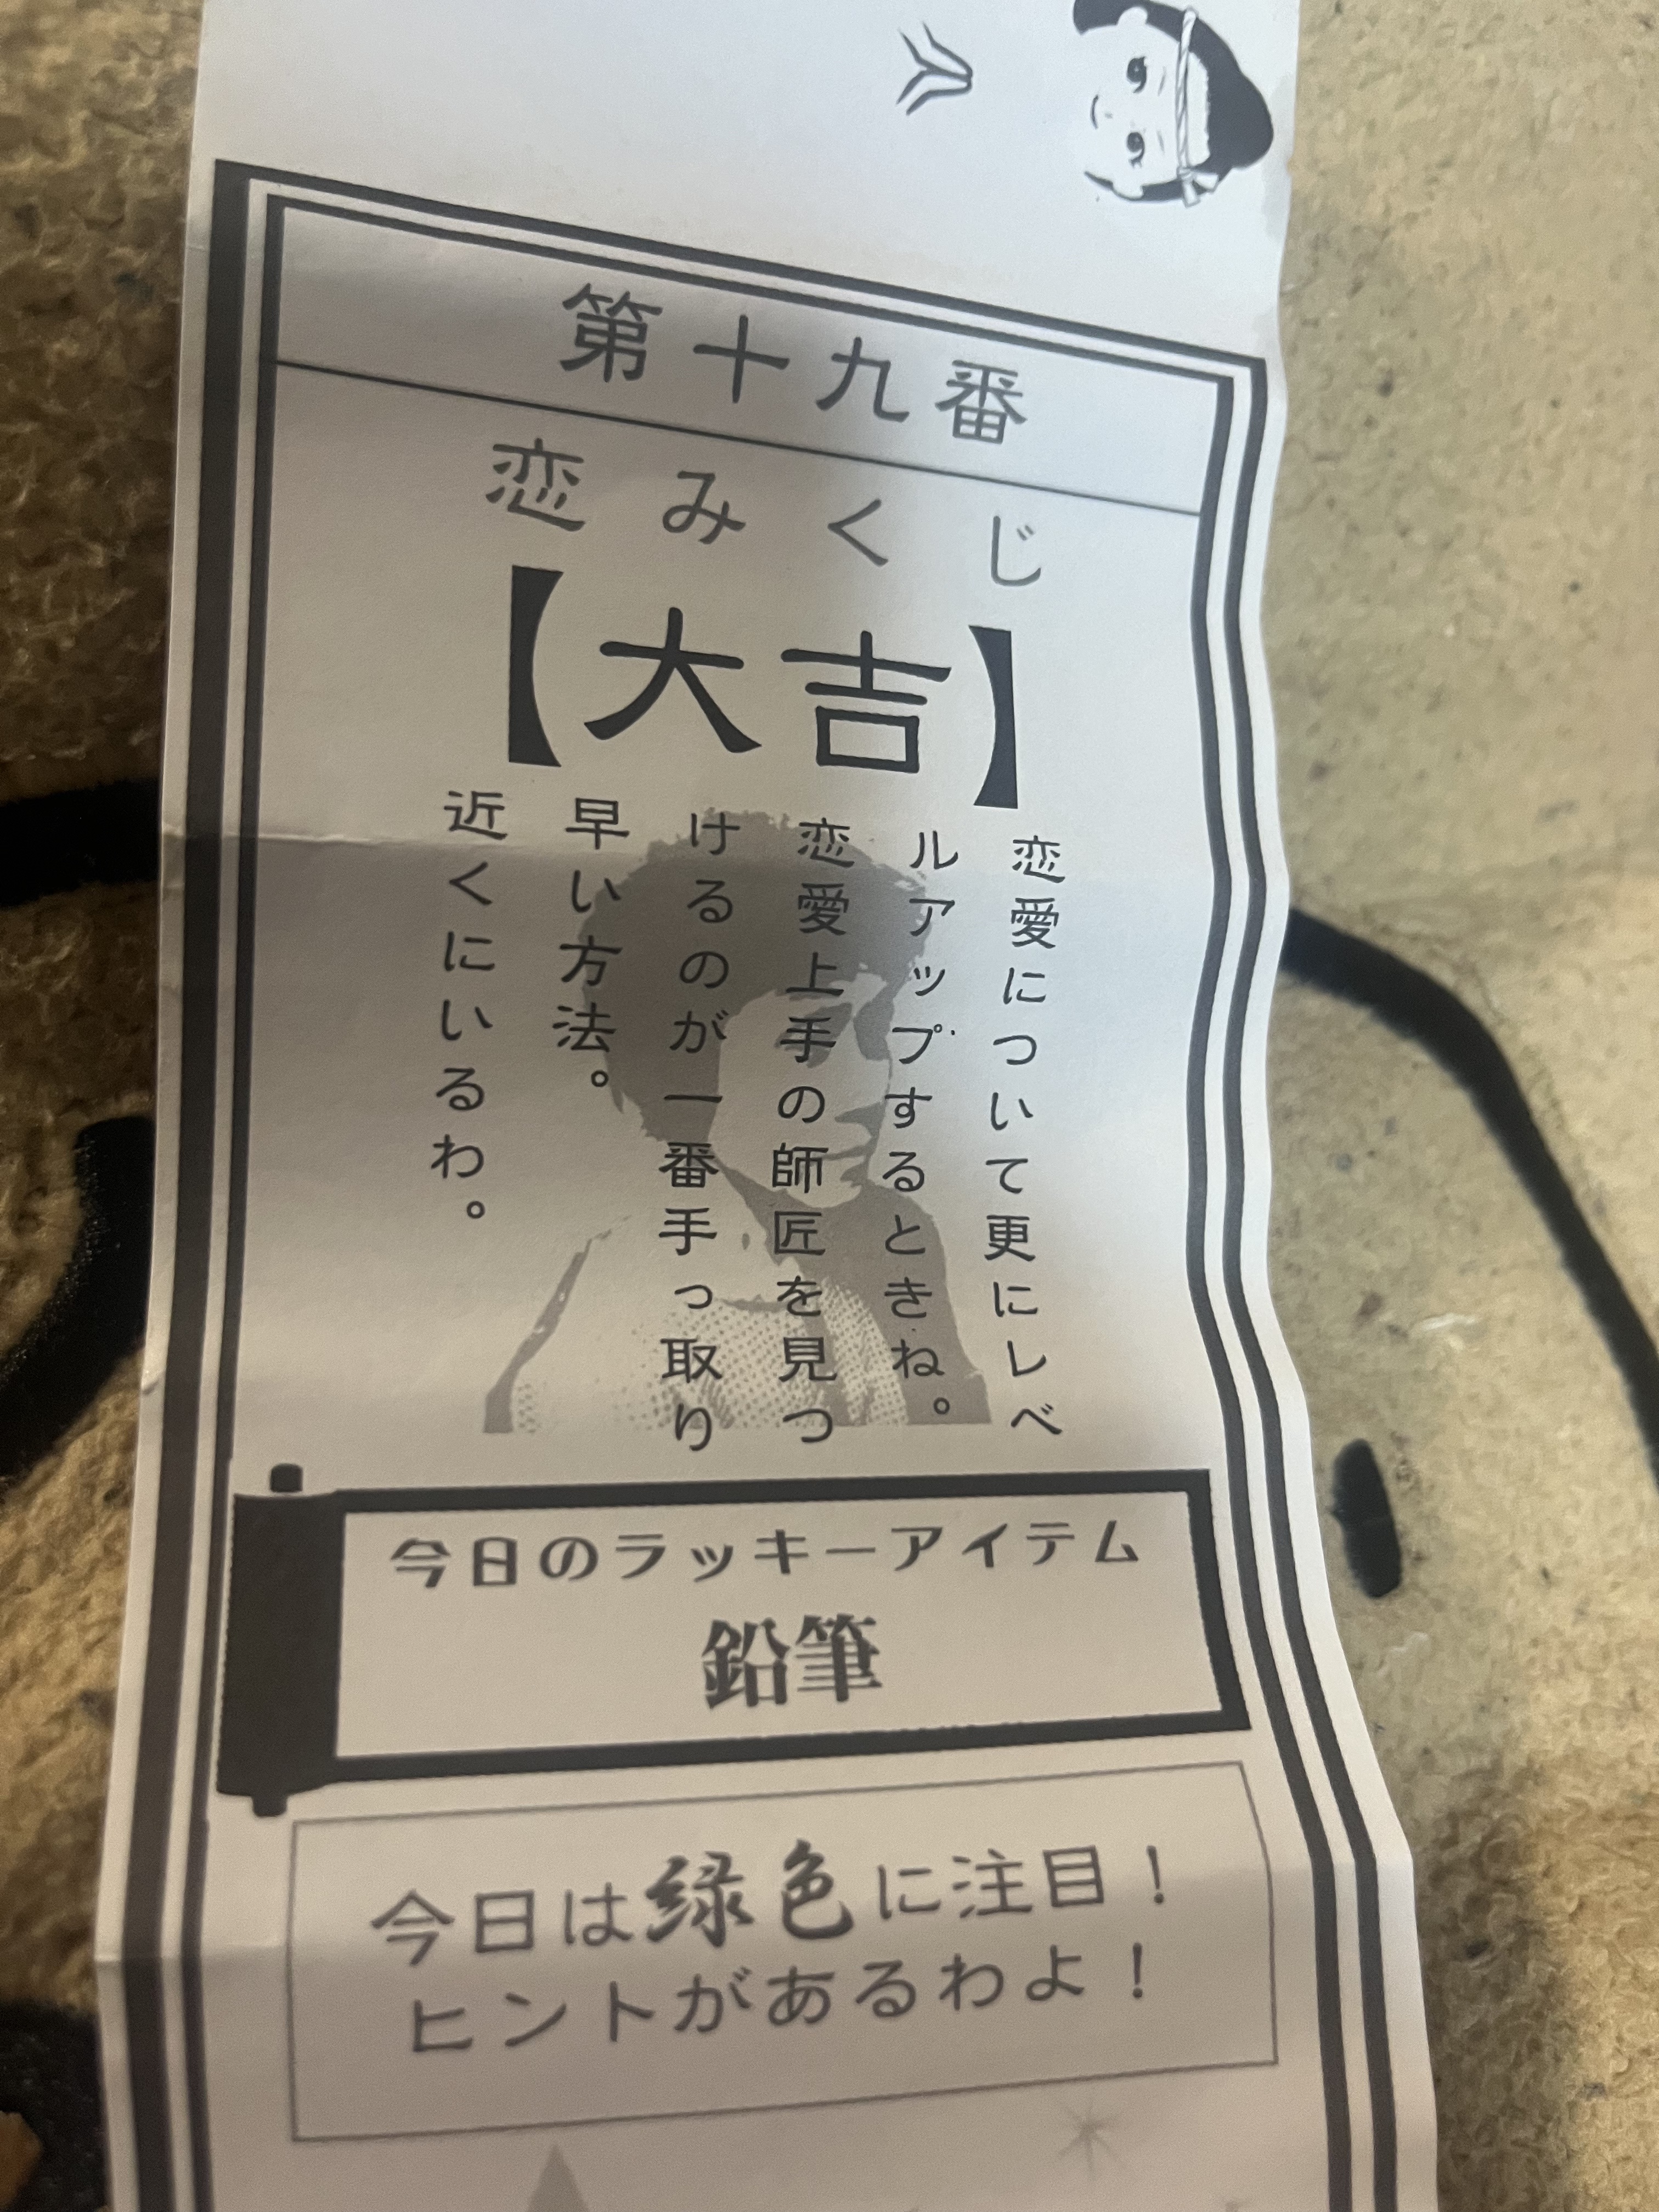 第十九番
恋みくじ
【大吉】
恋愛について更にレベ
ルアップするときね。
恋愛上手の師匠を見つ
けるのが一番手っ取り
早い方法。
近くにいるわ。
今日のラッキーアイテム
鉛筆
今日は緑色に注目！
ヒントがあるわよ！